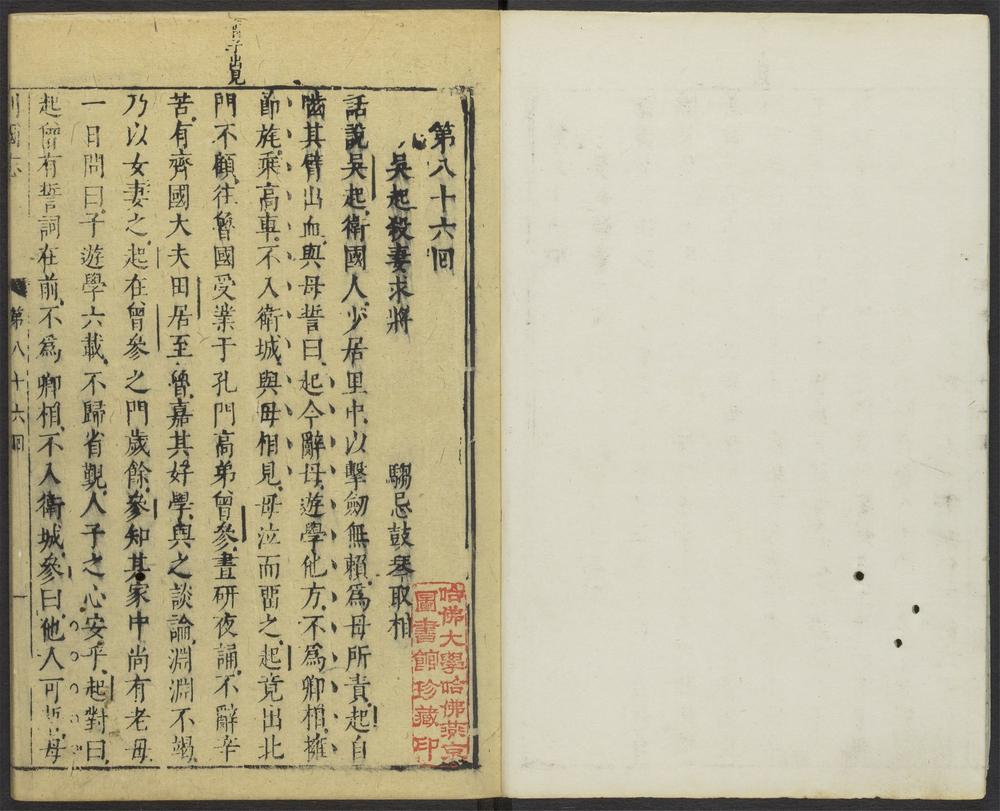 第八十六回
吳起殺妻求將 騶忌鼓琴取相
話說吳起衛國人少居里中以擊劒無賴爲母所責起自
嚙其臂出血與母誓曰起今辭母遊學他方不爲卿相擁
節旄乘高車不入衛城與母相見母泣而畱之起竟出北
門不顧往魯國受業于孔門高弟曾參晝研夜誦不辭辛
苦有齊國大夫田居至魯嘉其好學與之談論淵淵不竭
乃以女妻之起在曾參之門歲餘參知其家中尚有老母
一日問曰子遊學六載不歸省覲人子之心安乎起對曰
起曾有誓詞在前不爲卿相不入衛城參曰他人可誓母
列國志 第八十六回 一
子出見
哈佛大學哈佛燕京
圖書館珍藏印